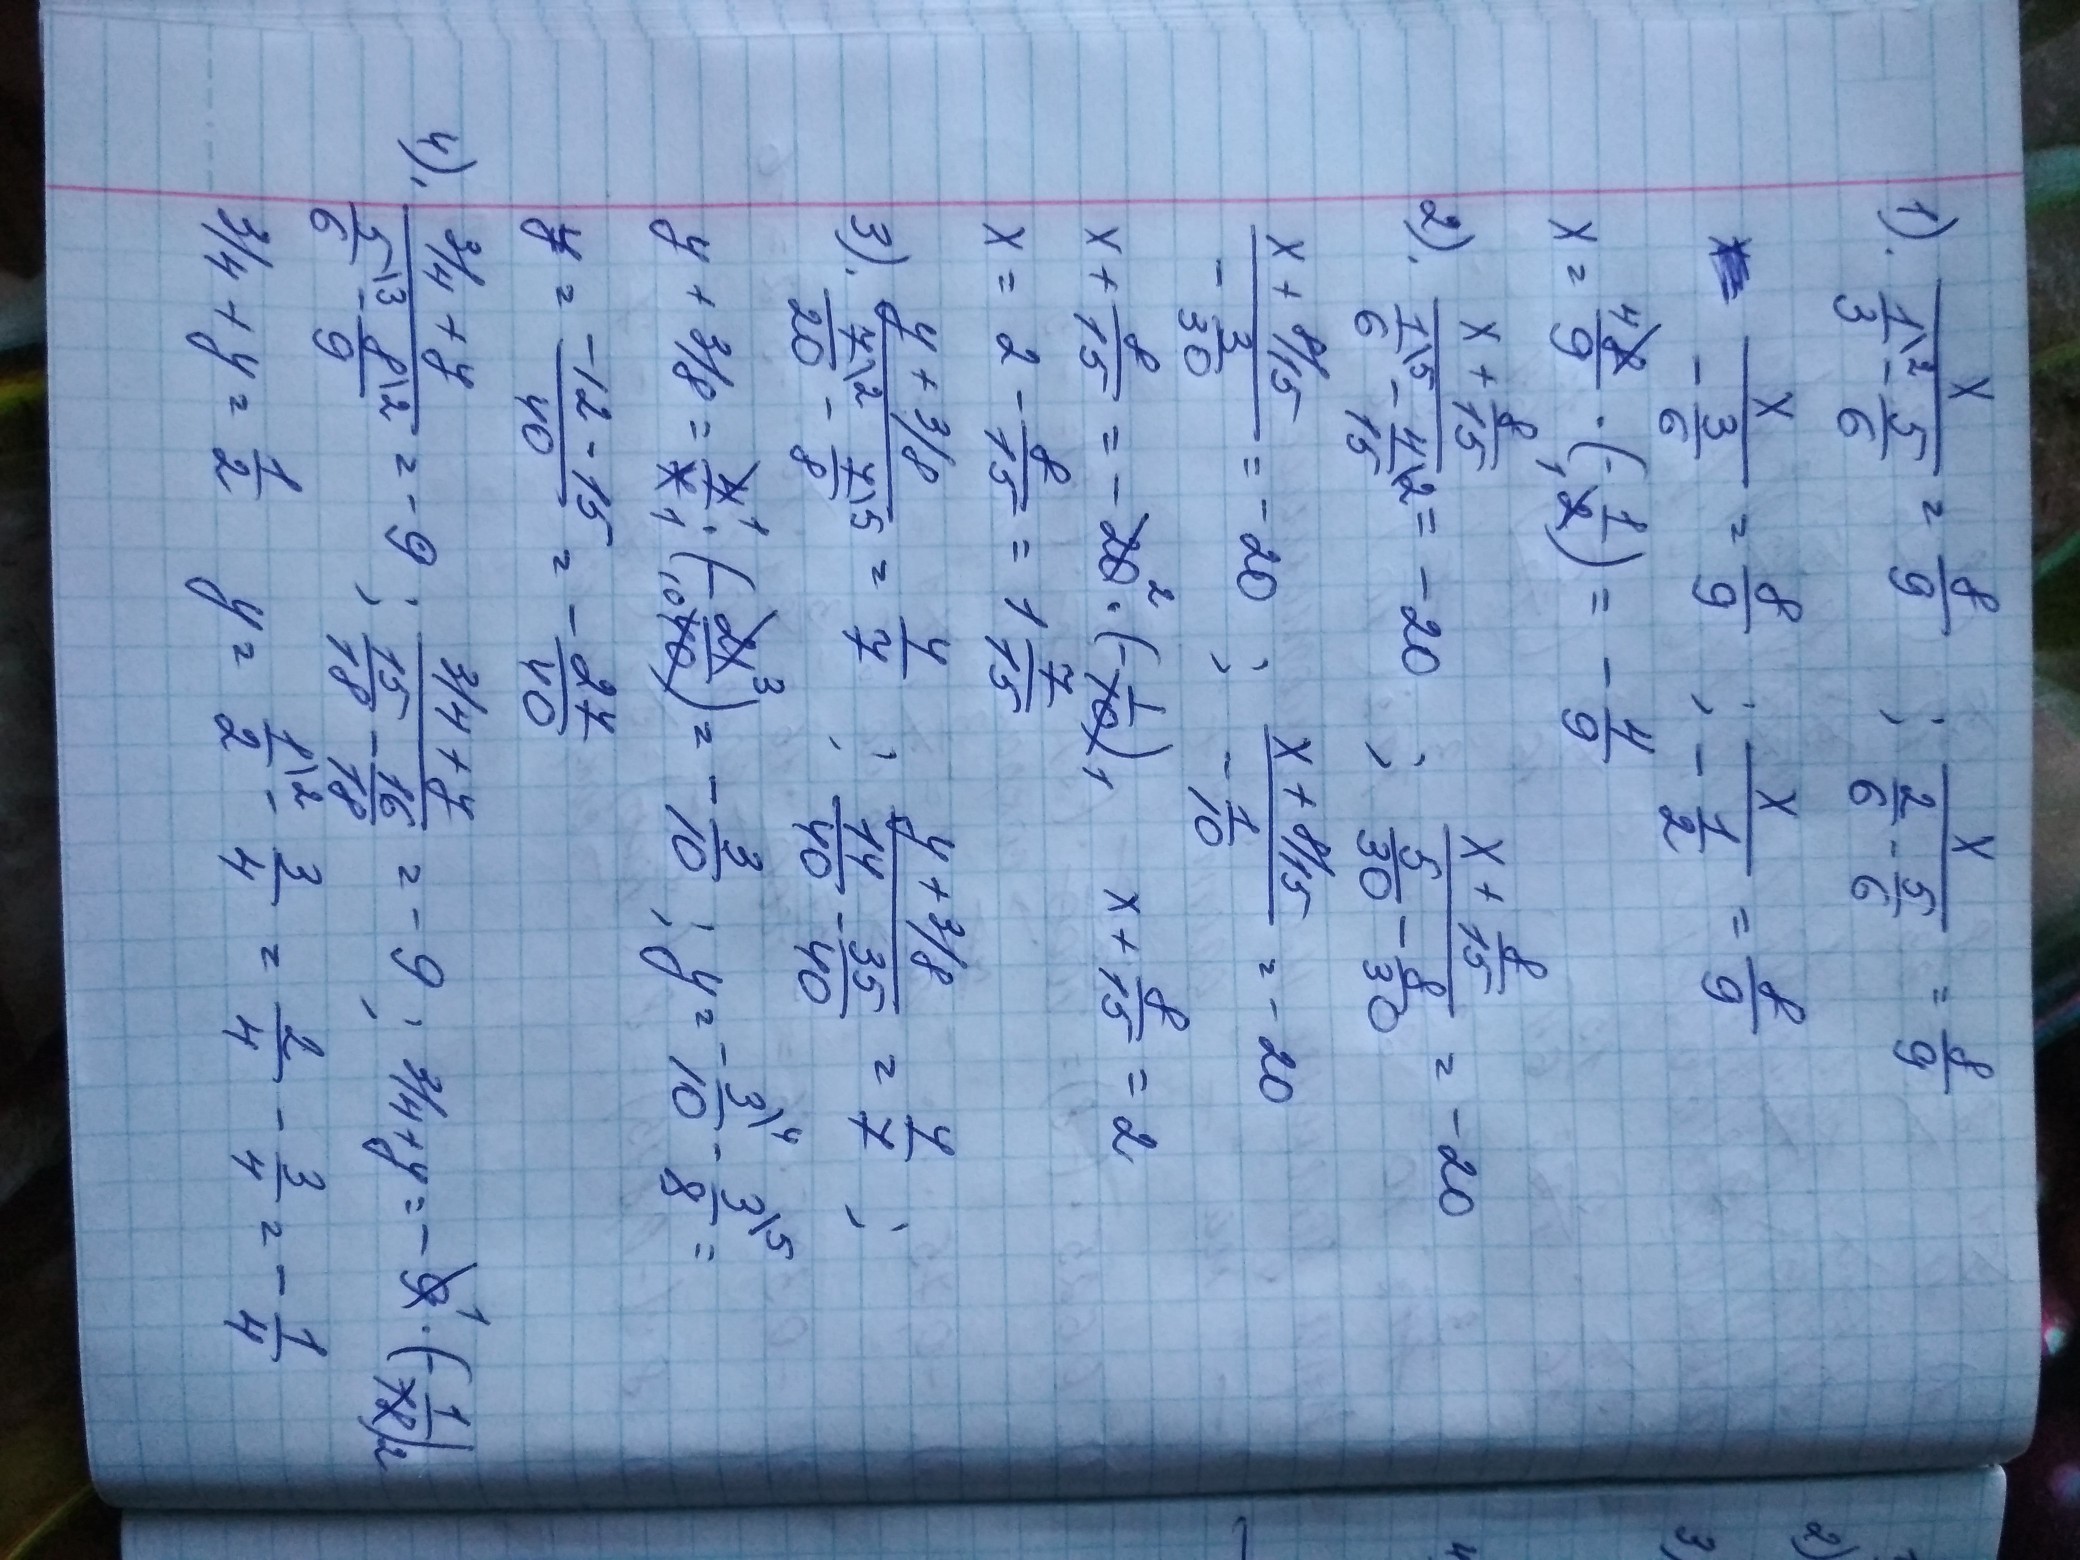 1). x / (1/3\2 - 5/6) = 8/9 ; x / (2/6 - 5/6) = 8/9
x / (-3/6) = 8/9 ; x / (-1/2) = 8/9
x = 4 8/9 · (-1/2) 1 = -4/9
2). (x + 8/15) / (1/6\5 - 4/15\2) = -20 ; (x + 8/15) / (5/30 - 8/30) = -20
(x + 8/15) / (-3/30) = -20 ; (x + 8/15) / (-1/10) = -20
x + 8/15 = -20 2 · (-1/10) 1 x + 8/15 = 2
x = 2 - 8/15 = 1 7/15
3). (y + 3/8) / (7/20\2 - 7/8\5) = 4/7 ; (y + 3/8) / (14/40 - 35/40) = 4/7 ;
y + 3/8 = 4 1/7 1 · (-21 3/40 10) = -3/10 ; y = -3/10\4 - 3/8\5 =
y = (-12 - 15)/40 = -27/40
4). (3/4 + y) / (5/6\3 - 8/9\2) = -9 ; (3/4 + y) / (15/18 - 16/18) = -9 ; 3/4 + y = -9 1 · (-1/18) 2
3/4 + y = 1/2 y = 1/2\2 - 3/4 = 2/4 - 3/4 = -1/4
2)
3)
4